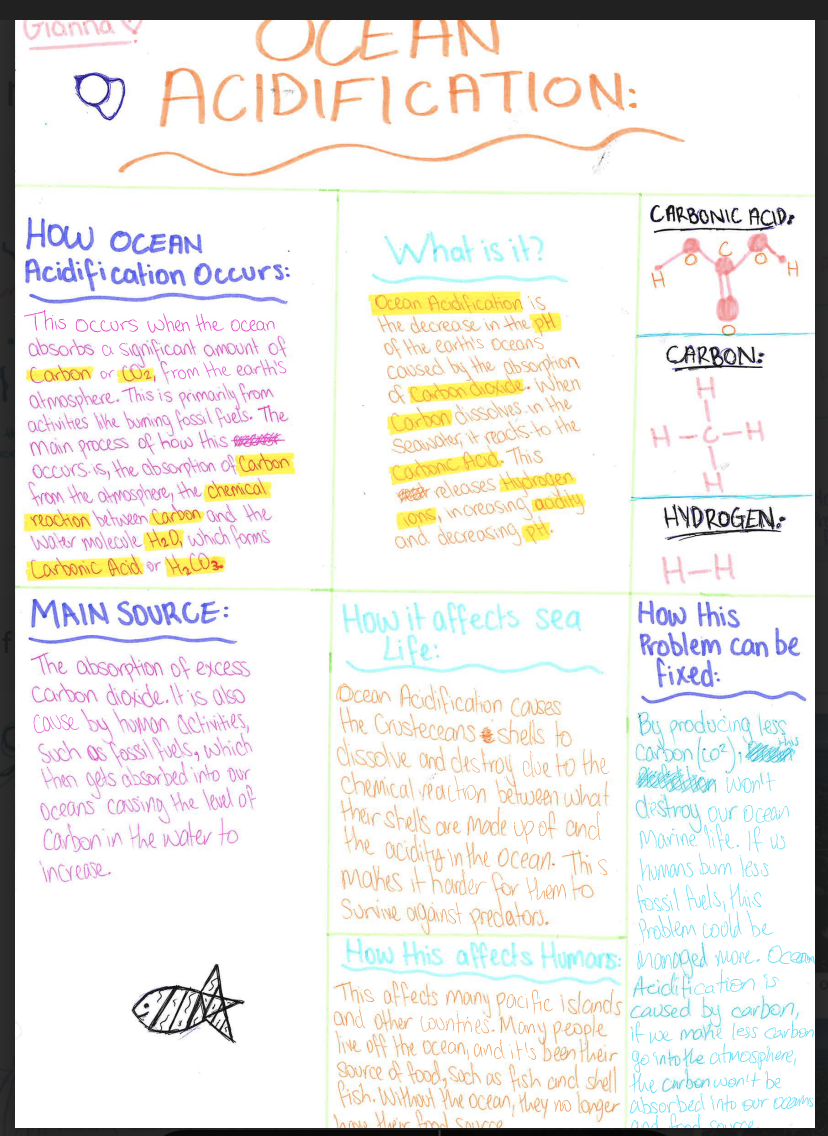 Gianna
OCEAN
ACIDIFICATION:
HOW OCEAN
Acidification Occurs:
This occurs when the ocean
absorbs a significant amount of
Carbon or CO2, from the earth's
atmosphere. This is primarily from
activities like burning fossil fuels. The
main process of how this
occurs is, the absorption of Carbon
from the atmosphere, the chemical
reaction between Carbon and the
water molecule H2O, which forms
Carbonic Acid or H2CO3.
What is it?
Ocean Acidification is
the decrease in the pH
of the earth's oceans
caused by the absorption
of Carbon dioxide. When
Carbon dissolves in the
seawater, it reacts to the
Carbonic Acid. This
releases Hydrogen
ions, increasing acidity
and decreasing pH.
CARBONIC ACID:
C
O O
H H
O
CARBON:
H
H-C-H
H
HYDROGEN:
H-H
MAIN SOURCE:
The absorption of excess
Carbon dioxide. It is also
cause by human activities,
such as fossil fuels, which
then gets absorbed into our
oceans causing the level of
Carbon in the water to
increase.
How it affects sea
Life:
Ocean Acidification causes
the Crusteceans shells to
dissolve and destroy due to the
chemical reaction between what
their shells are made up of and
the acidity in the ocean. This
makes it harder for them to
survive against predators.
How this affects Humans:
This affects many pacific islands
and other countries. Many people
live off the ocean, and it's been their
source of food, such as fish and shell
fish. Without the ocean, they no longer
have their food source
How this
Problem can be
fixed:
By producing less
carbon (co2), this
won't
destroy our ocean
marine life. If us
humans burn less
fossil fuels, this
problem could be
managed more. Ocean
Acidification is
caused by carbon,
if we make less carbon
go into the atmosphere,
the carbon won't be
absorbed into our oceans
and food source.